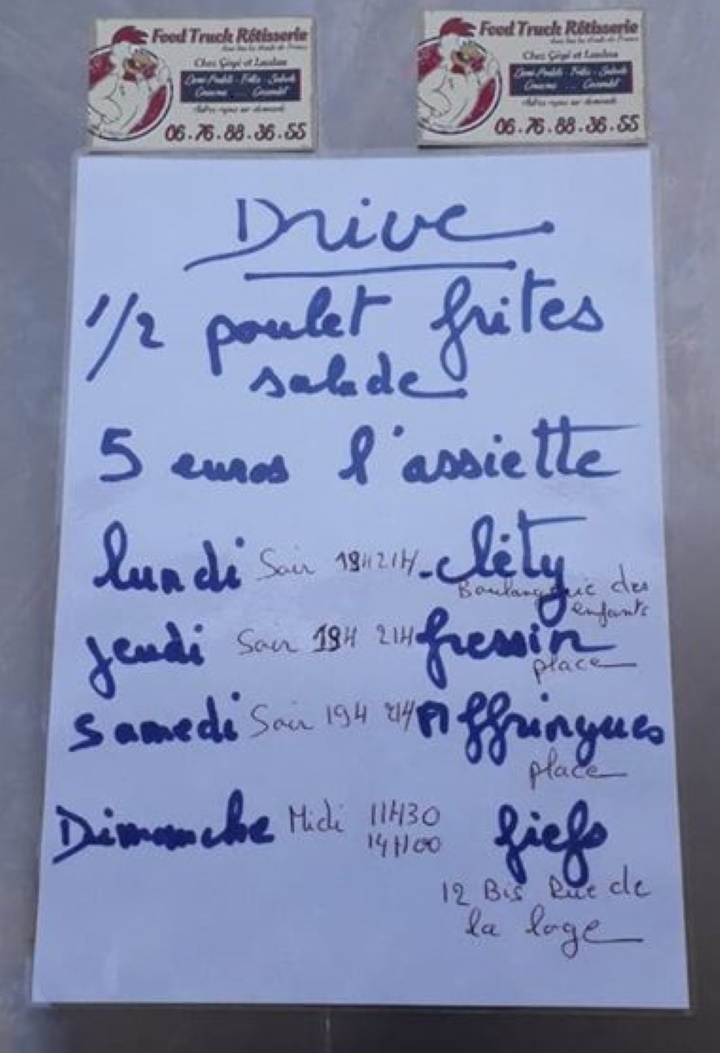 Food Truck Rôtisserie
Chez Gégé et Loulou
06.76.88.36.55
Food Truck Rôtisserie
Chez Gégé et Loulou
06.76.88.36.55
Drive
1/2 poulet frites
salade
5 euros l'assiette
lundi Soir 18H 21H - cléty
Boulangerie des
enfants
jeudi Soir 18H 21H fressin
place
samedi Soir 19H 21H Affringues
place
Dimanche Midi 11H30
14H00 fiefs
12 Bis Rue de
la loge